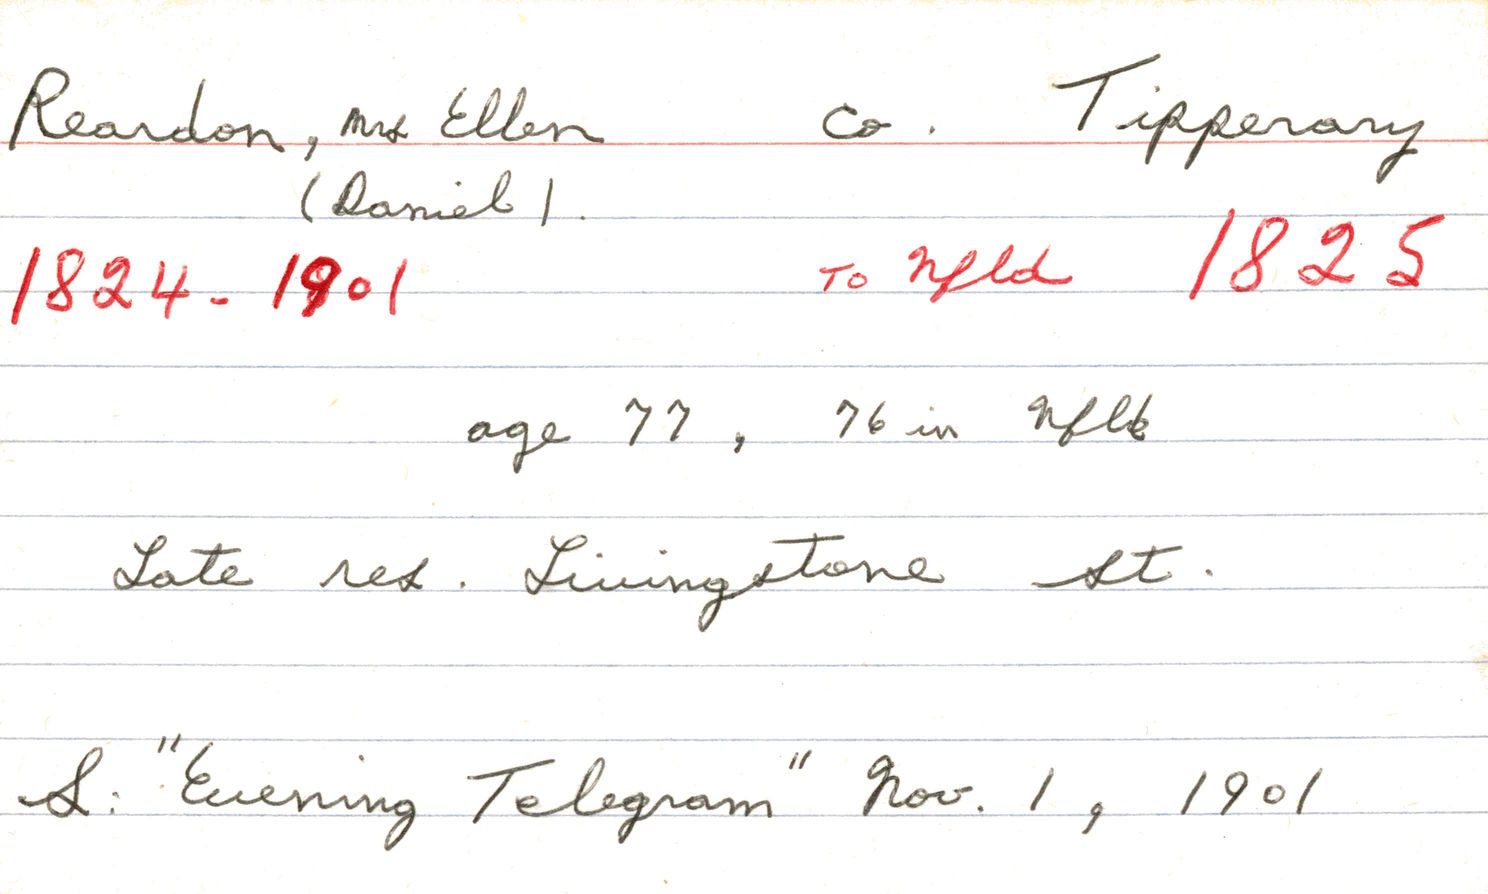 Reardon, Mrs Ellen Co. Tipperary
(Daniel).
1824-1901 To Nfld 1825
age 77, 76 in Nfld
Late res. Livingstone St.
S: "Evening Telegram" Nov. 1, 1901